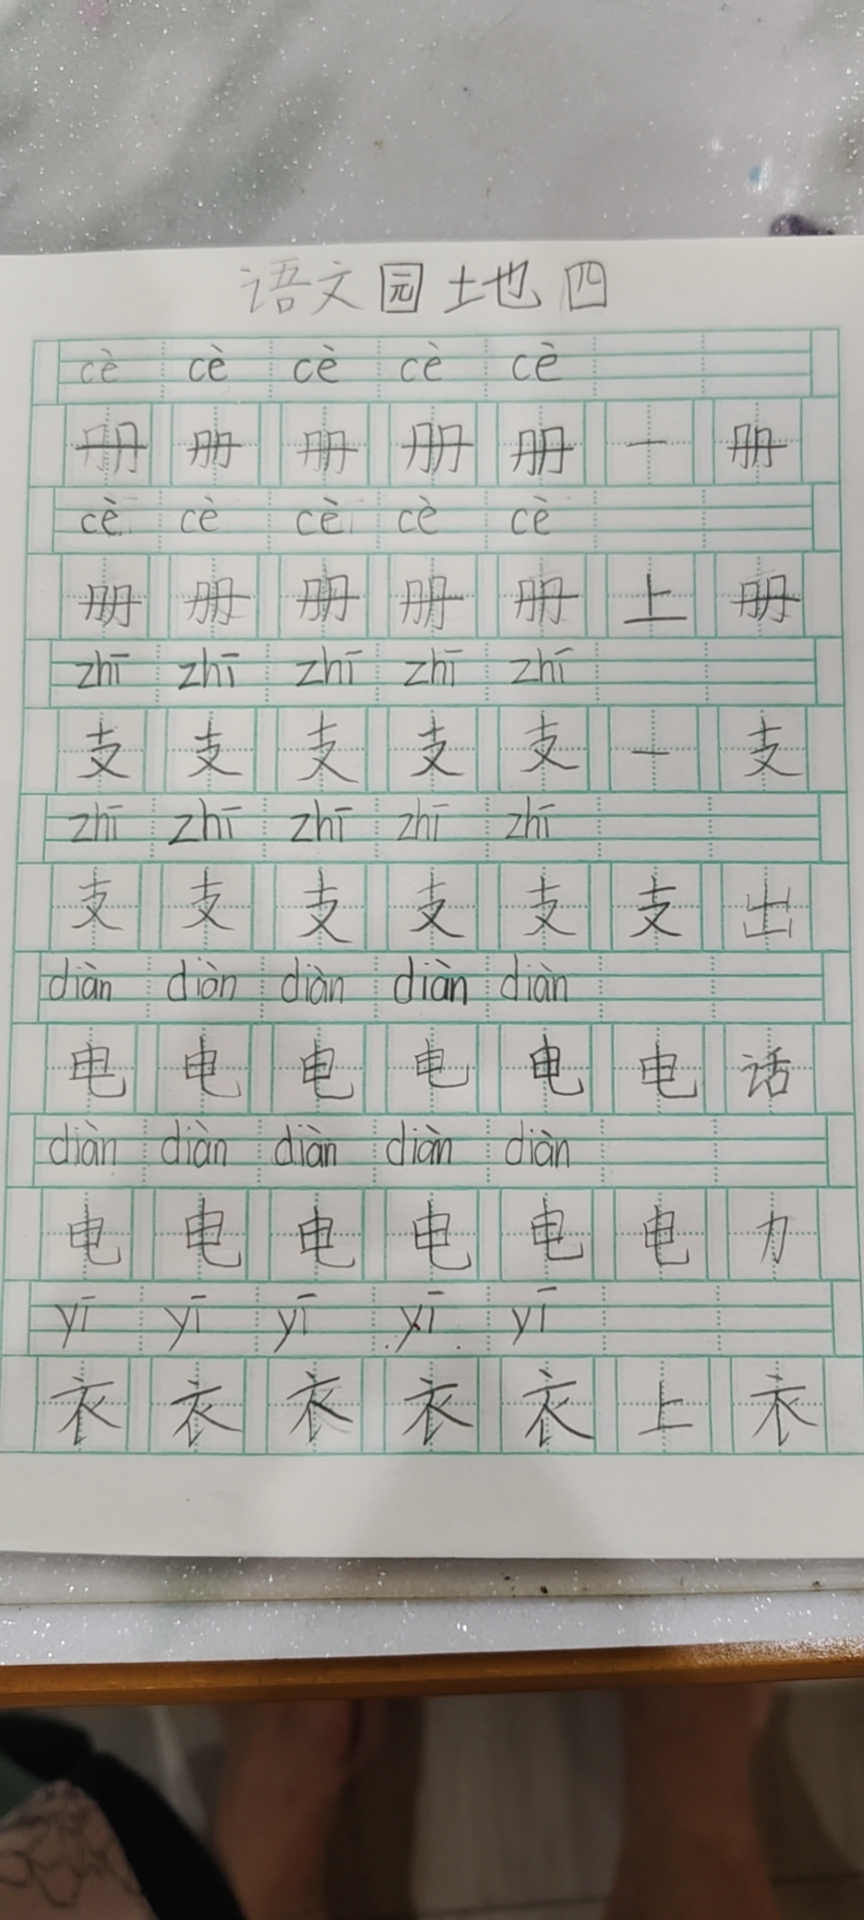 语文园地四
cè cè cè cè cè
册 册 册 册 册 一 册
cè cè cè cè cè
册 册 册 册 册 上 册
zhī zhī zhī zhī zhī
支 支 支 支 支 一 支
zhī zhī zhī zhī zhī
支 支 支 支 支 支 出
diàn diàn diàn diàn diàn
电 电 电 电 电 电 话
diàn diàn diàn diàn diàn
电 电 电 电 电 电 力
yī yī yī yī yī
衣 衣 衣 衣 衣 上 衣